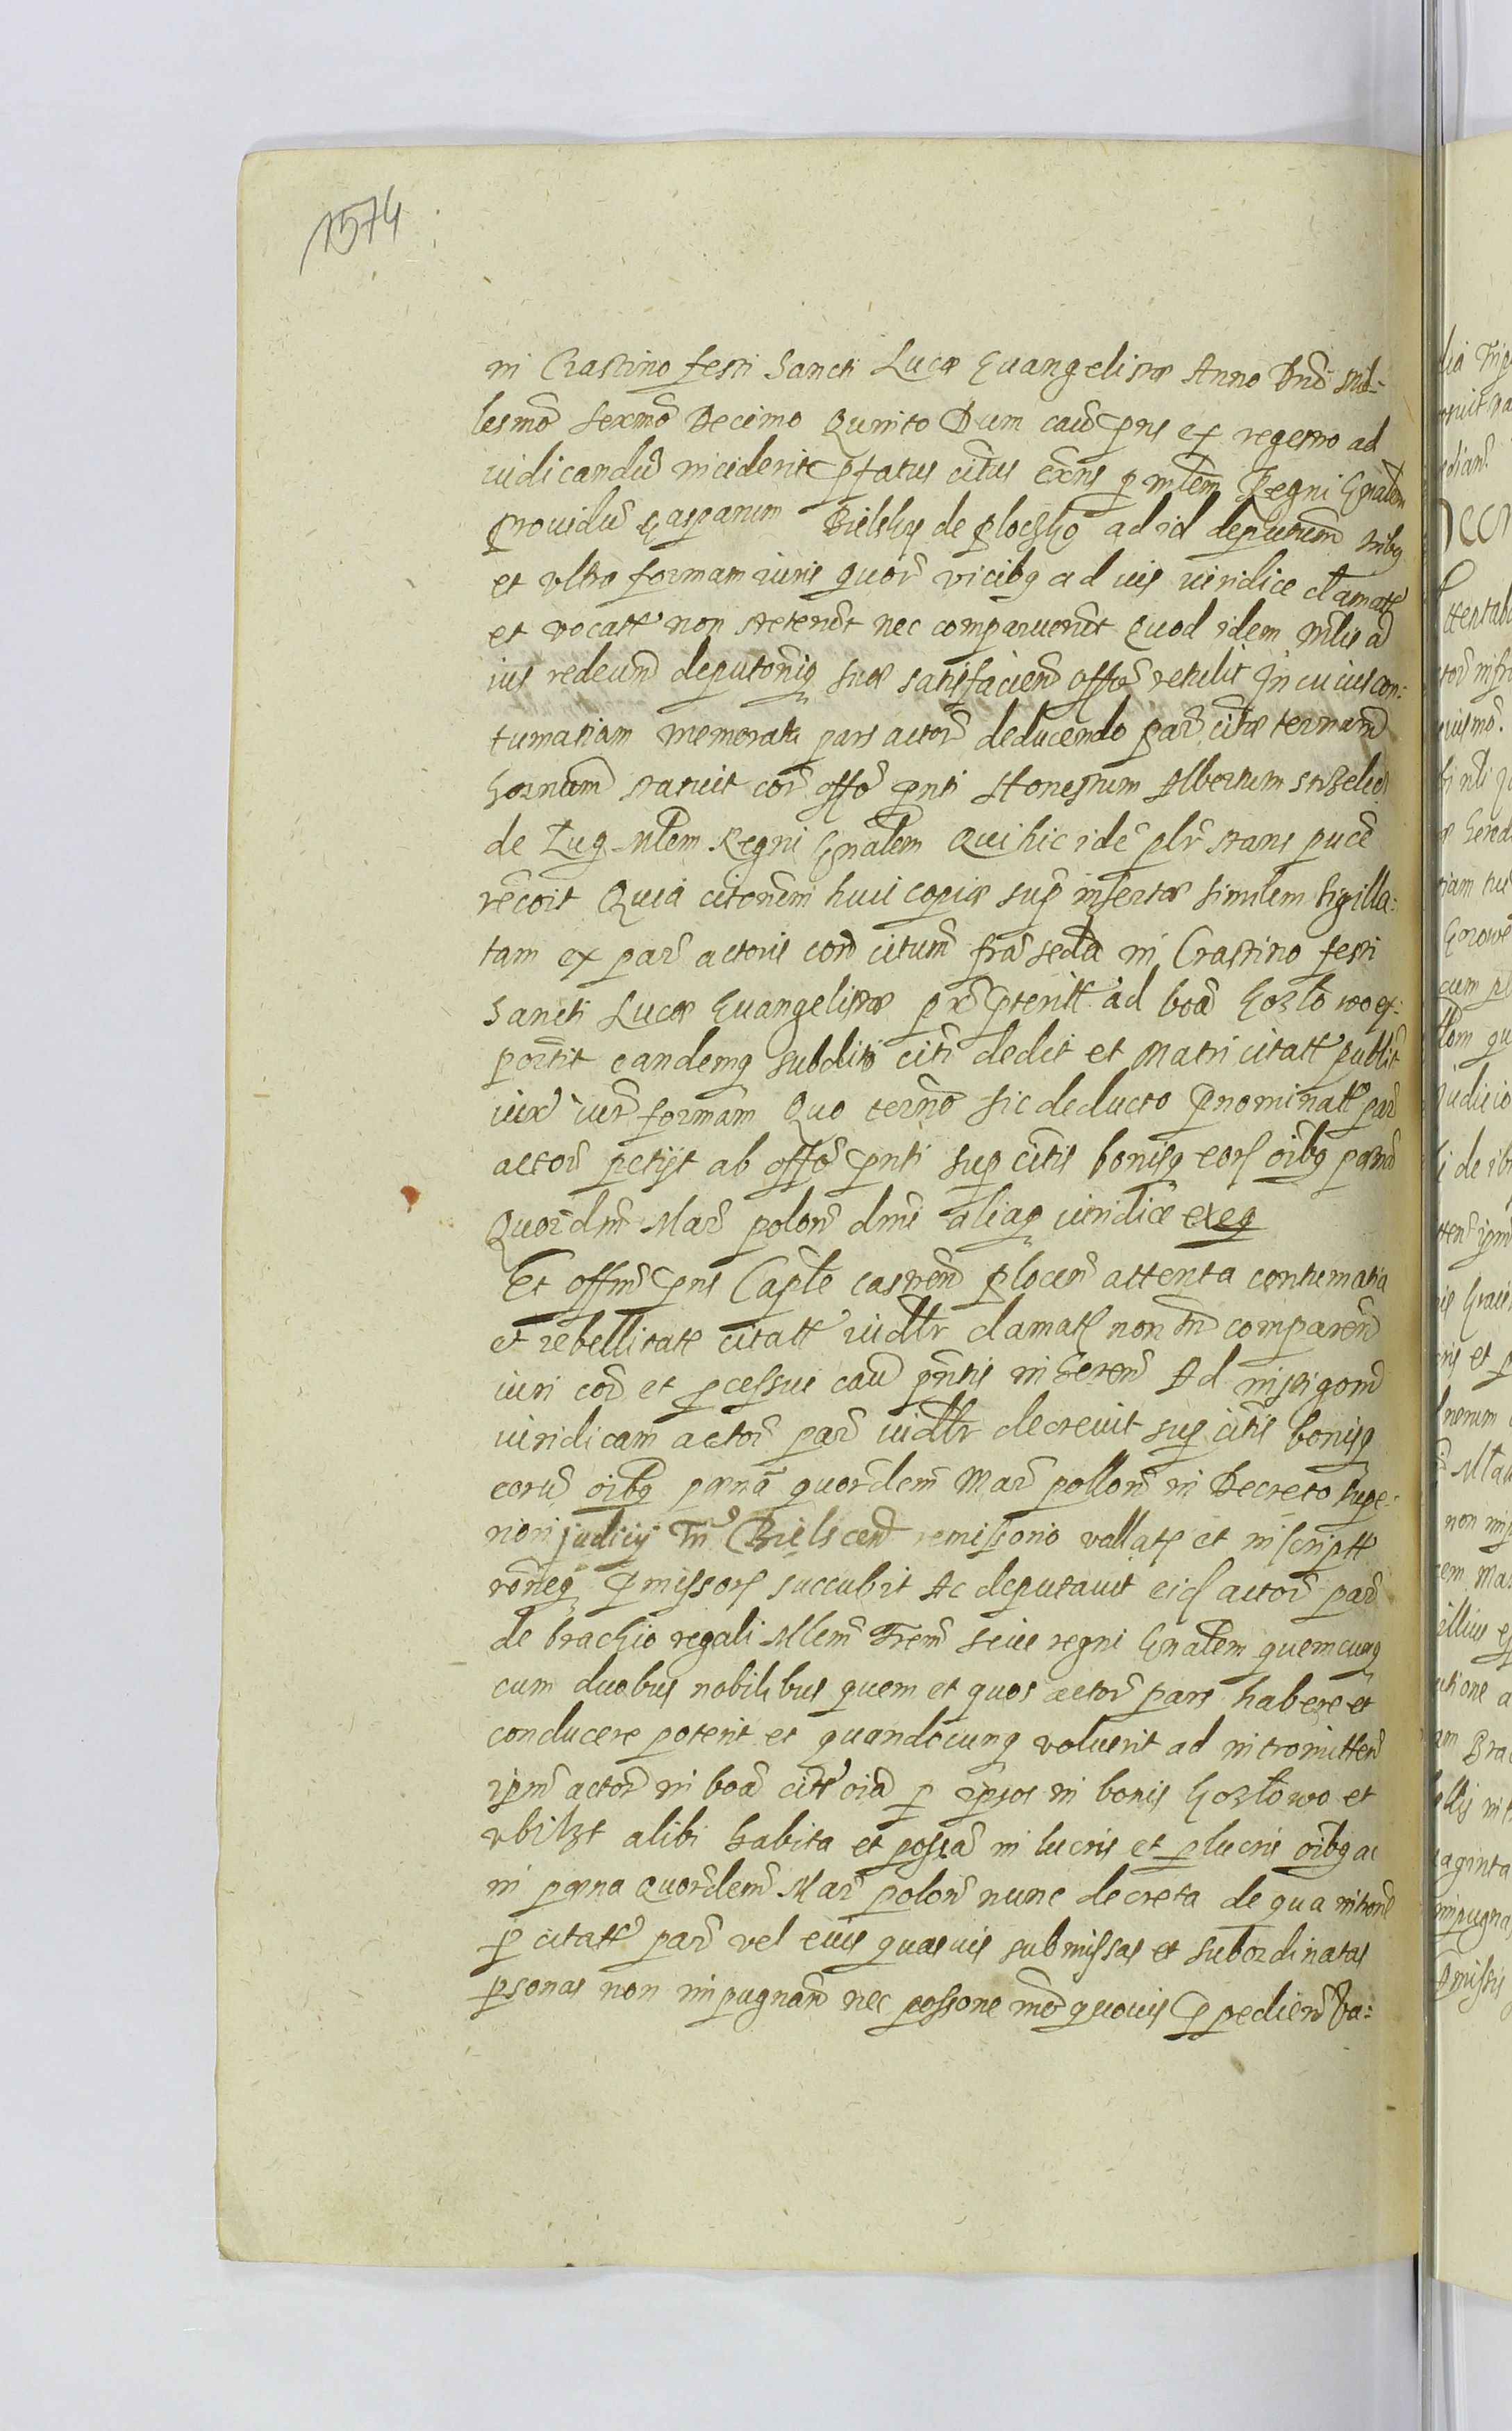 1574
in Crastino festi Sancti Lucæ Evangelistæ Anno Dnō Mil-
lesmō sexmō Decimo Quinto Dum caū pns ex regestro ad
iudicandū inciderit pfatus citus exns p mlem Regni Gnalem
providū Casparum Bielsky de Ploczko ad id deputum tribq
et ultra formam iuris quor vicibq ad ius iuridice clamatꝭ
et vocatꝭ non steterūt nec comparuerūt Quod idem mlis ad
ius redeund deputoniq suæ satisfaciend offo retulit In cuius con-
tumatiam memorata pars actor deducendo par citæ termum
hornum statuit cor offo pnti Honestum Albertum
de Lug Mlem Regni Gnalem Qui hic idē plr stans pucē
recoit Quia citonem huic copiæ sup insertæ similem sigilla-
tam ex par actoris con citum fra seda in Crastino festi
Sancti Lucæ Evangelistæ px pteritꝭ ad boa Gozlowo ex-
portit eandemq subdito citi dedit et Matri citatꝭ publit
iux iur formam Quo termo sic deducto Pnominatꝭ par
actor petijt ab offo pnti sup citis bonisq eorꝭ oibq pænā
Quordm Mar polon dmi aliaq iuridice exeq
Et offm pns Caple castren Plocen attenta contumatia
et rebellitate citatꝭ iudlr clamatꝭ non tn comparen
iuri cor et pcessui caū pntis inheren Ad instigonem
iuridicam actor par iudlr decrevit sup citis bonisq
eorū oibq pænā quordem Mar pollon in Decreto supe-
riori judicij Tri Bielscen remissorio vallatꝭ et inscriptꝭ
roneq Pmissorꝭ succubit Ac deputavit eid actor par
de brachio regali Mlem Trem sive regni Gnalem quemcunq
cum duobus nobilibus quem et quos actor pars habere et
conducere poterit et quandocunq voluerit ad intromitten
ipm actor in boa citꝭ oia p ipsos in bonis Gozlowo et
ubilzt alibi habita et possa in lucris et plucris oibq ac
in pæna quordem Mar polon nunc decreta de qua introne
p citatꝭ par vel eius quasvis submissas et subordinatas
psonas non impugnan nec possone mo quovis Ppedien Va-